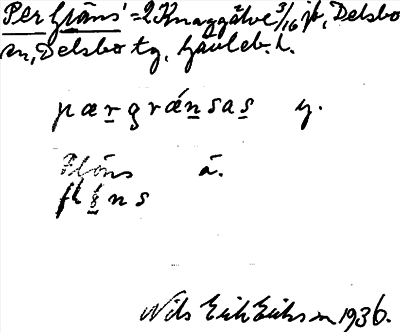 Per Gräns' = 2 Knaggälve 3/16 jt, Delsbo
sn, Delsbo tg, Gävleb. l.
pærgrǽnsas y.
Pläns å.
Nils Erik Eriksson 1936.